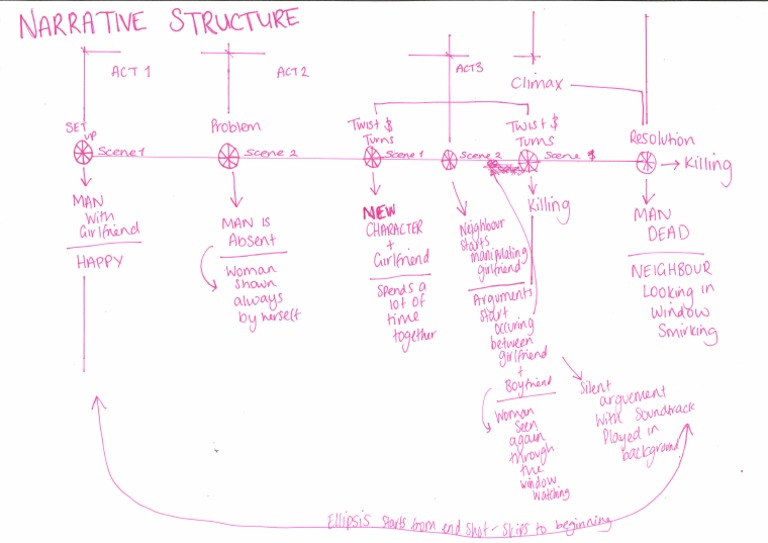 NARRATIVE STRUCTURE
ACT 1
ACT 2
ACT3
Climax
SET
UP
Problem
Twist &
Turns
Twist &
Turns
Resolution
Scene 1
Scene 2
Scene 1
Scene 2
Scene
→ Killing
MAN
With
Girlfriend
HAPPY
MAN IS
Absent
Woman
shown
always
by herself
NEW
CHARACTER
+
Girlfriend
Spends a
lot of
time
together
Neighbour
starts
manipulating
girlfriend
Arguments
start
occuring
between
girlfriend
+
Boyfriend
Woman
Seen
again
through
the
window
watching
Killing
Silent
arguement
With Soundtrack
Played in
background
MAN
DEAD
NEIGHBOUR
Looking in
Window
Smirking
Ellipsis starts from end shot - skips to beginning